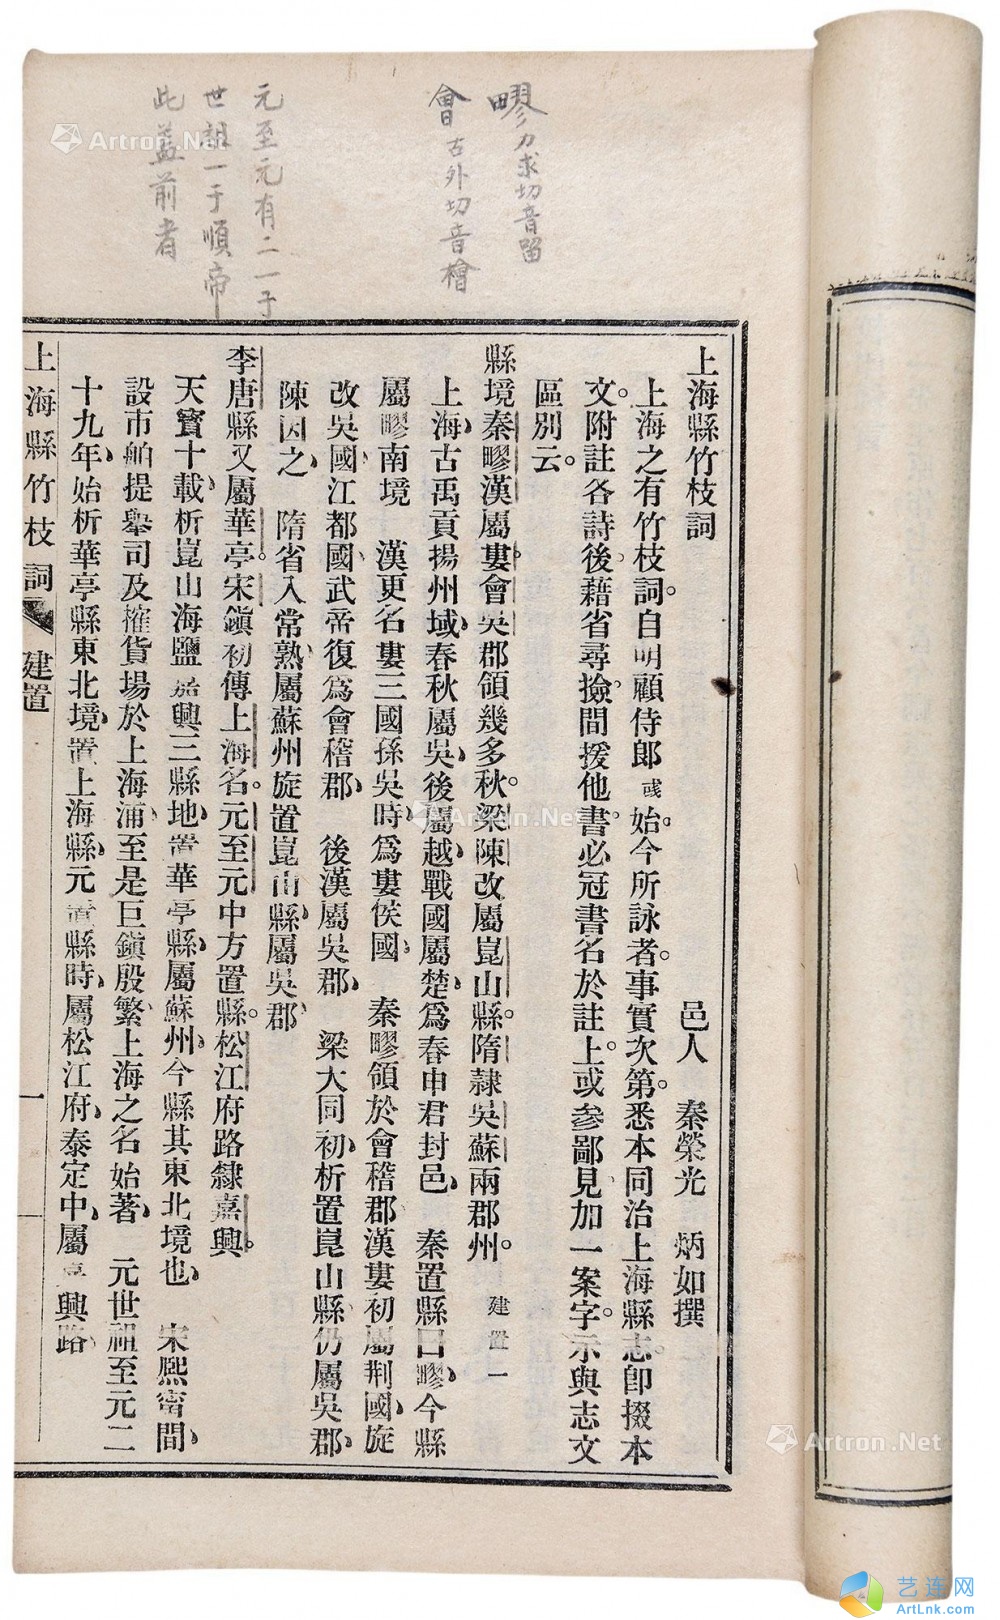 疁力求切音留
會古外切音檜
元至元有二一于
世祖一于順帝
此蓋前者
上海縣竹枝詞
邑人 秦榮光 炳如撰
上海之有竹枝詞。自明顧侍郎彧始。今所詠者。事實次第。悉本同治上海縣志。卽掇本
文。附註各詩後。藉省尋撿。間援他書。必冠書名於註上。或參鄙見。加一案字。示與志文
區別云。
縣境秦疁漢屬婁。會吳郡領幾多秋。梁陳改屬崑山縣。隋隸吳蘇兩郡州。 建置一
上海、古禹貢揚州域、春秋屬吳、後屬越、戰國屬楚、爲春申君封邑、 秦置縣曰疁、今縣
屬疁南境 漢更名婁、三國孫吳時、爲婁侯國、 秦疁領於會稽郡、漢婁初屬荆國、旋
改吳國、江都國、武帝復爲會稽郡、 後漢屬吳郡、 梁大同初、析置崑山縣、仍屬吳郡、
陳因之、 隋省入常熟、屬蘇州、旋置崑山縣、屬吳郡、
李唐縣又屬華亭。宋鎮初傳上海名。元至元中方置縣。松江府路隸嘉興。
天寶十載、析崑山海鹽嘉興三縣地、置華亭縣、屬蘇州、今縣其東北境也、 宋熙甯間、
設市舶提舉司及榷貨場於上海浦、至是巨鎮殷繁、上海之名始著、 元世祖至元二
十九年、始析華亭縣東北境、置上海縣、元置縣時、屬松江府、泰定中、屬嘉興路、
上海縣竹枝詞 建置 一
Artron.Net
Artron.Net
Artron.Net
艺连网
ArtLnk.com